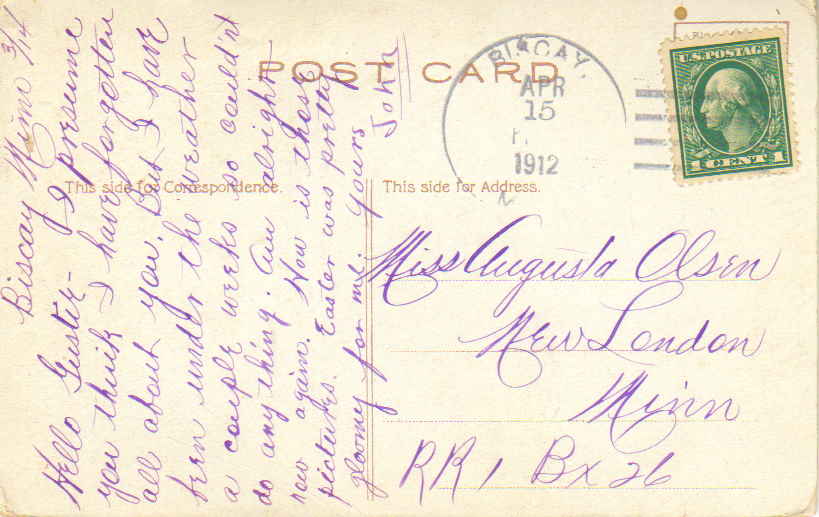 POST CARD
BISCAY,
APR
15
1912
U.S. POSTAGE
1 CENT 1
This side for Correspondence.
This side for Address.
Biscay Minn 3/14
Hello Gustie - I presume
you think I have forgotten
all about you. But I have
been under the weather
a couple weeks so could'nt
do anything. Am alright
now again. How is those
pictures. Easter was pretty
gloomy for me. Yours
John
Miss Augusta Olsen
New London
Minn
RR 1 Bx 26